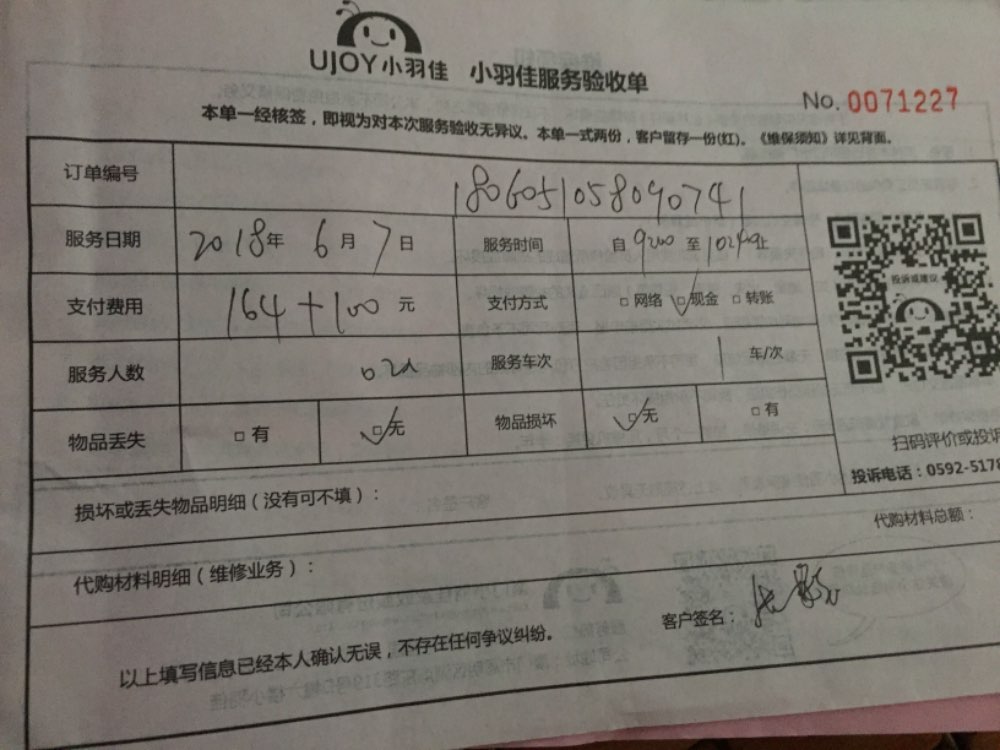 UJOY小羽佳 小羽佳服务验收单
No. 0071227
本单一经核签，即视为对本次服务验收无异议。本单一式两份，客户留存一份(红)。《维保须知》详见背面。
订单编号 1806051058090741
服务日期 2018年 6月 7日 服务时间 自 9200 至 止
支付费用 164+100 元 支付方式 □网络 □现金 □转账
服务人数 02人 服务车次 1 车/次
物品丢失 □有 □无 物品损坏 □无 □有
投诉或建议
扫码评价或投诉
投诉电话：0592-5178
损坏或丢失物品明细（没有可不填）：
代购材料明细（维修业务）： 代购材料总额：
以上填写信息已经本人确认无误，不存在任何争议纠纷。 客户签名：